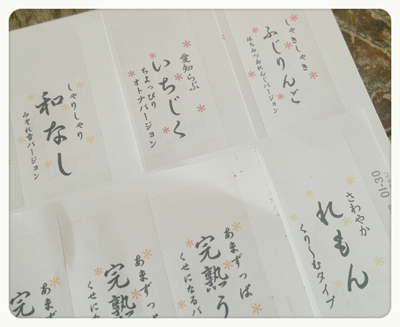 しゃりしゃり
和なし
みぞれ雪バージョン
愛知らぶ
いちじく
ちょっぴり
オトナバージョン
しゃきしゃき
ふじりんご
はちみつおれんじバージョン
あまずっぱ
完熟
あまずっぱ
完熟
くせになるバ
あまずっぱ
完熟う
くせになるバ
さわやか
れもん
くりーむタイプ
01-30